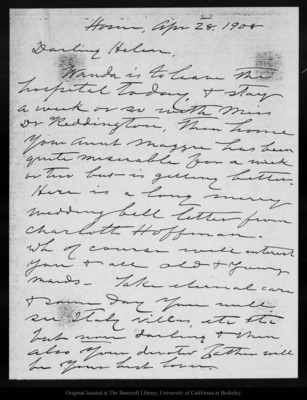 Home, Apr 28, 1908
Darling Helen,
Wanda is to leave the
hospital today & stay
a week or so with Miss
Dr Reddington, then home
Your Aunt Maggie has been
quite miserable for a week
or two but is getting better.
Here is a long merry
wedding bell letter from
Charlotte Hoffman.
wh of course will interest
you & all old & young
maids - Take eternal care
& some day you will
see Italy villas, etc etc
but now darling & then
also your devoted father will
be your best
Original located at The Bancroft Library, University of California at Berkeley